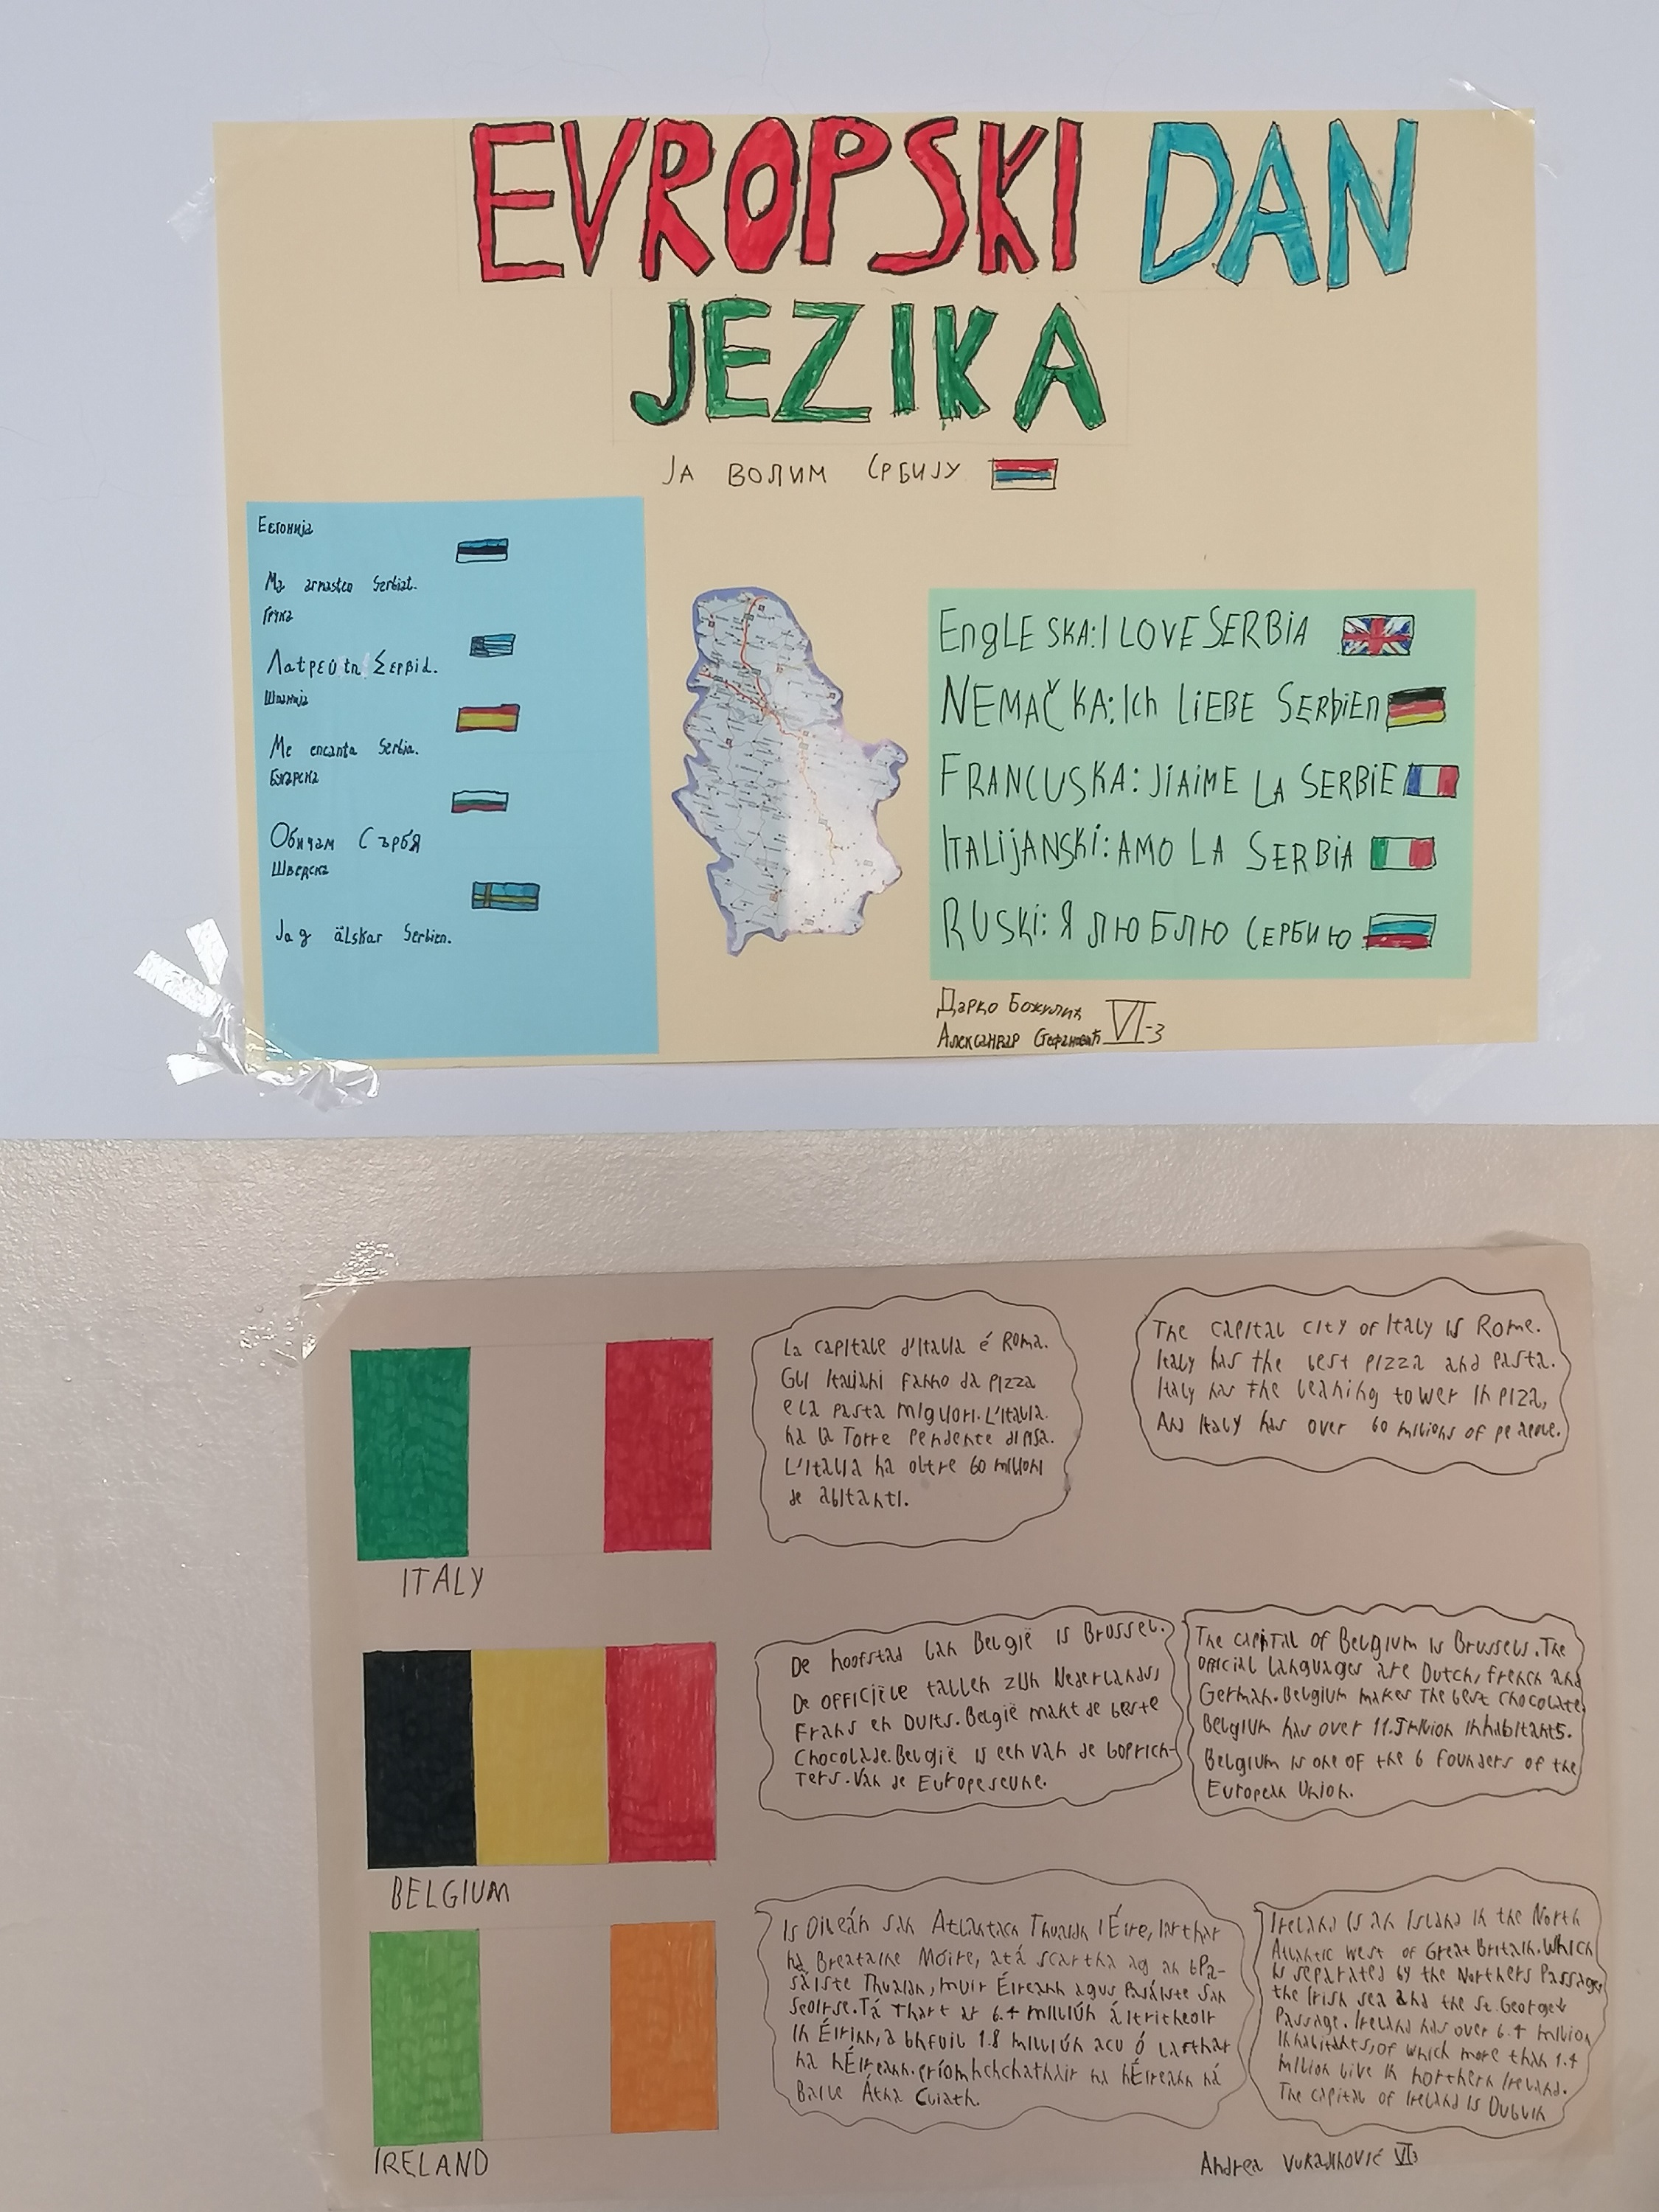 EVROPSKI DAN
JEZIKA
ЈА ВОЛИМ СРБИЈУ
Естонија
Ma armastan Serbiat.
Грчка
Λατρεύω τη Σερβία.
Шпанија
Me encanta Serbia.
Бугарска
Обичам Сърбя
Шведска
Jag älskar Serbien.
EnglESKA: I LOVE SERBiA
NEMAČKA: Ich LiEBE SERbiEn
FRANCUSKA: J'AiME LA SERBiE
ITALijANSKi: AMO LA SERBiA
RUSKi: Я ЛЮБЛЮ СЕРБИЮ
Дарко
Александар Стефановић VI-3
La capitale d'Italia é Roma.
Gli Italiani fanno da pizza
e la pasta migliori. L'Italia
ha la Torre Pendente di Pisa.
L'Italia ha oltre 60 milioni
de abitanti.
The capital city of Italy is Rome.
Italy has the best pizza and pasta.
Italy has the leaning tower in piza,
And Italy has over 60 milions of
ITALY
De hoofstad van België is Brussel.
De officiële tallen zijn Nederlands,
Frans en Duits. België makt de beste
Chocolade. België is een van de
ters. Van de
The capital of Belgium is Brussels. The
official languages are Dutch, french and
German. Belgium makes the best chocolate.
Belgium has over 11.5 million inhabitants.
Belgium is one of the 6 founders of the
European Union.
BELGIUM
Is Oileán san Atlantach Thuaidh i Éire, iarthar
na Breataine Móire, atá scartha ag an bPa-
sáiste Thuaidh, muir Éireann agus Pasáiste San
Seoirse. Tá thart ar 6.4 milliún áitritheoir
in Éirinn, a bhfuil 1.8 milliún acu ó iarthar
na hÉireann. príomhchchathair na hÉireann ná
Baile Átha Cliath.
Ireland is an island in the North
Atlantic west of Great Britain. Which
is separated by the Northers Passage,
the Irish sea and the St. George's
Passage. Ireland has over 6.4 million
inhabitants, of which more than 1.4
million live in northern Ireland.
The capital of Ireland is Dublin
IRELAND
Andrea Vukadinović VI3